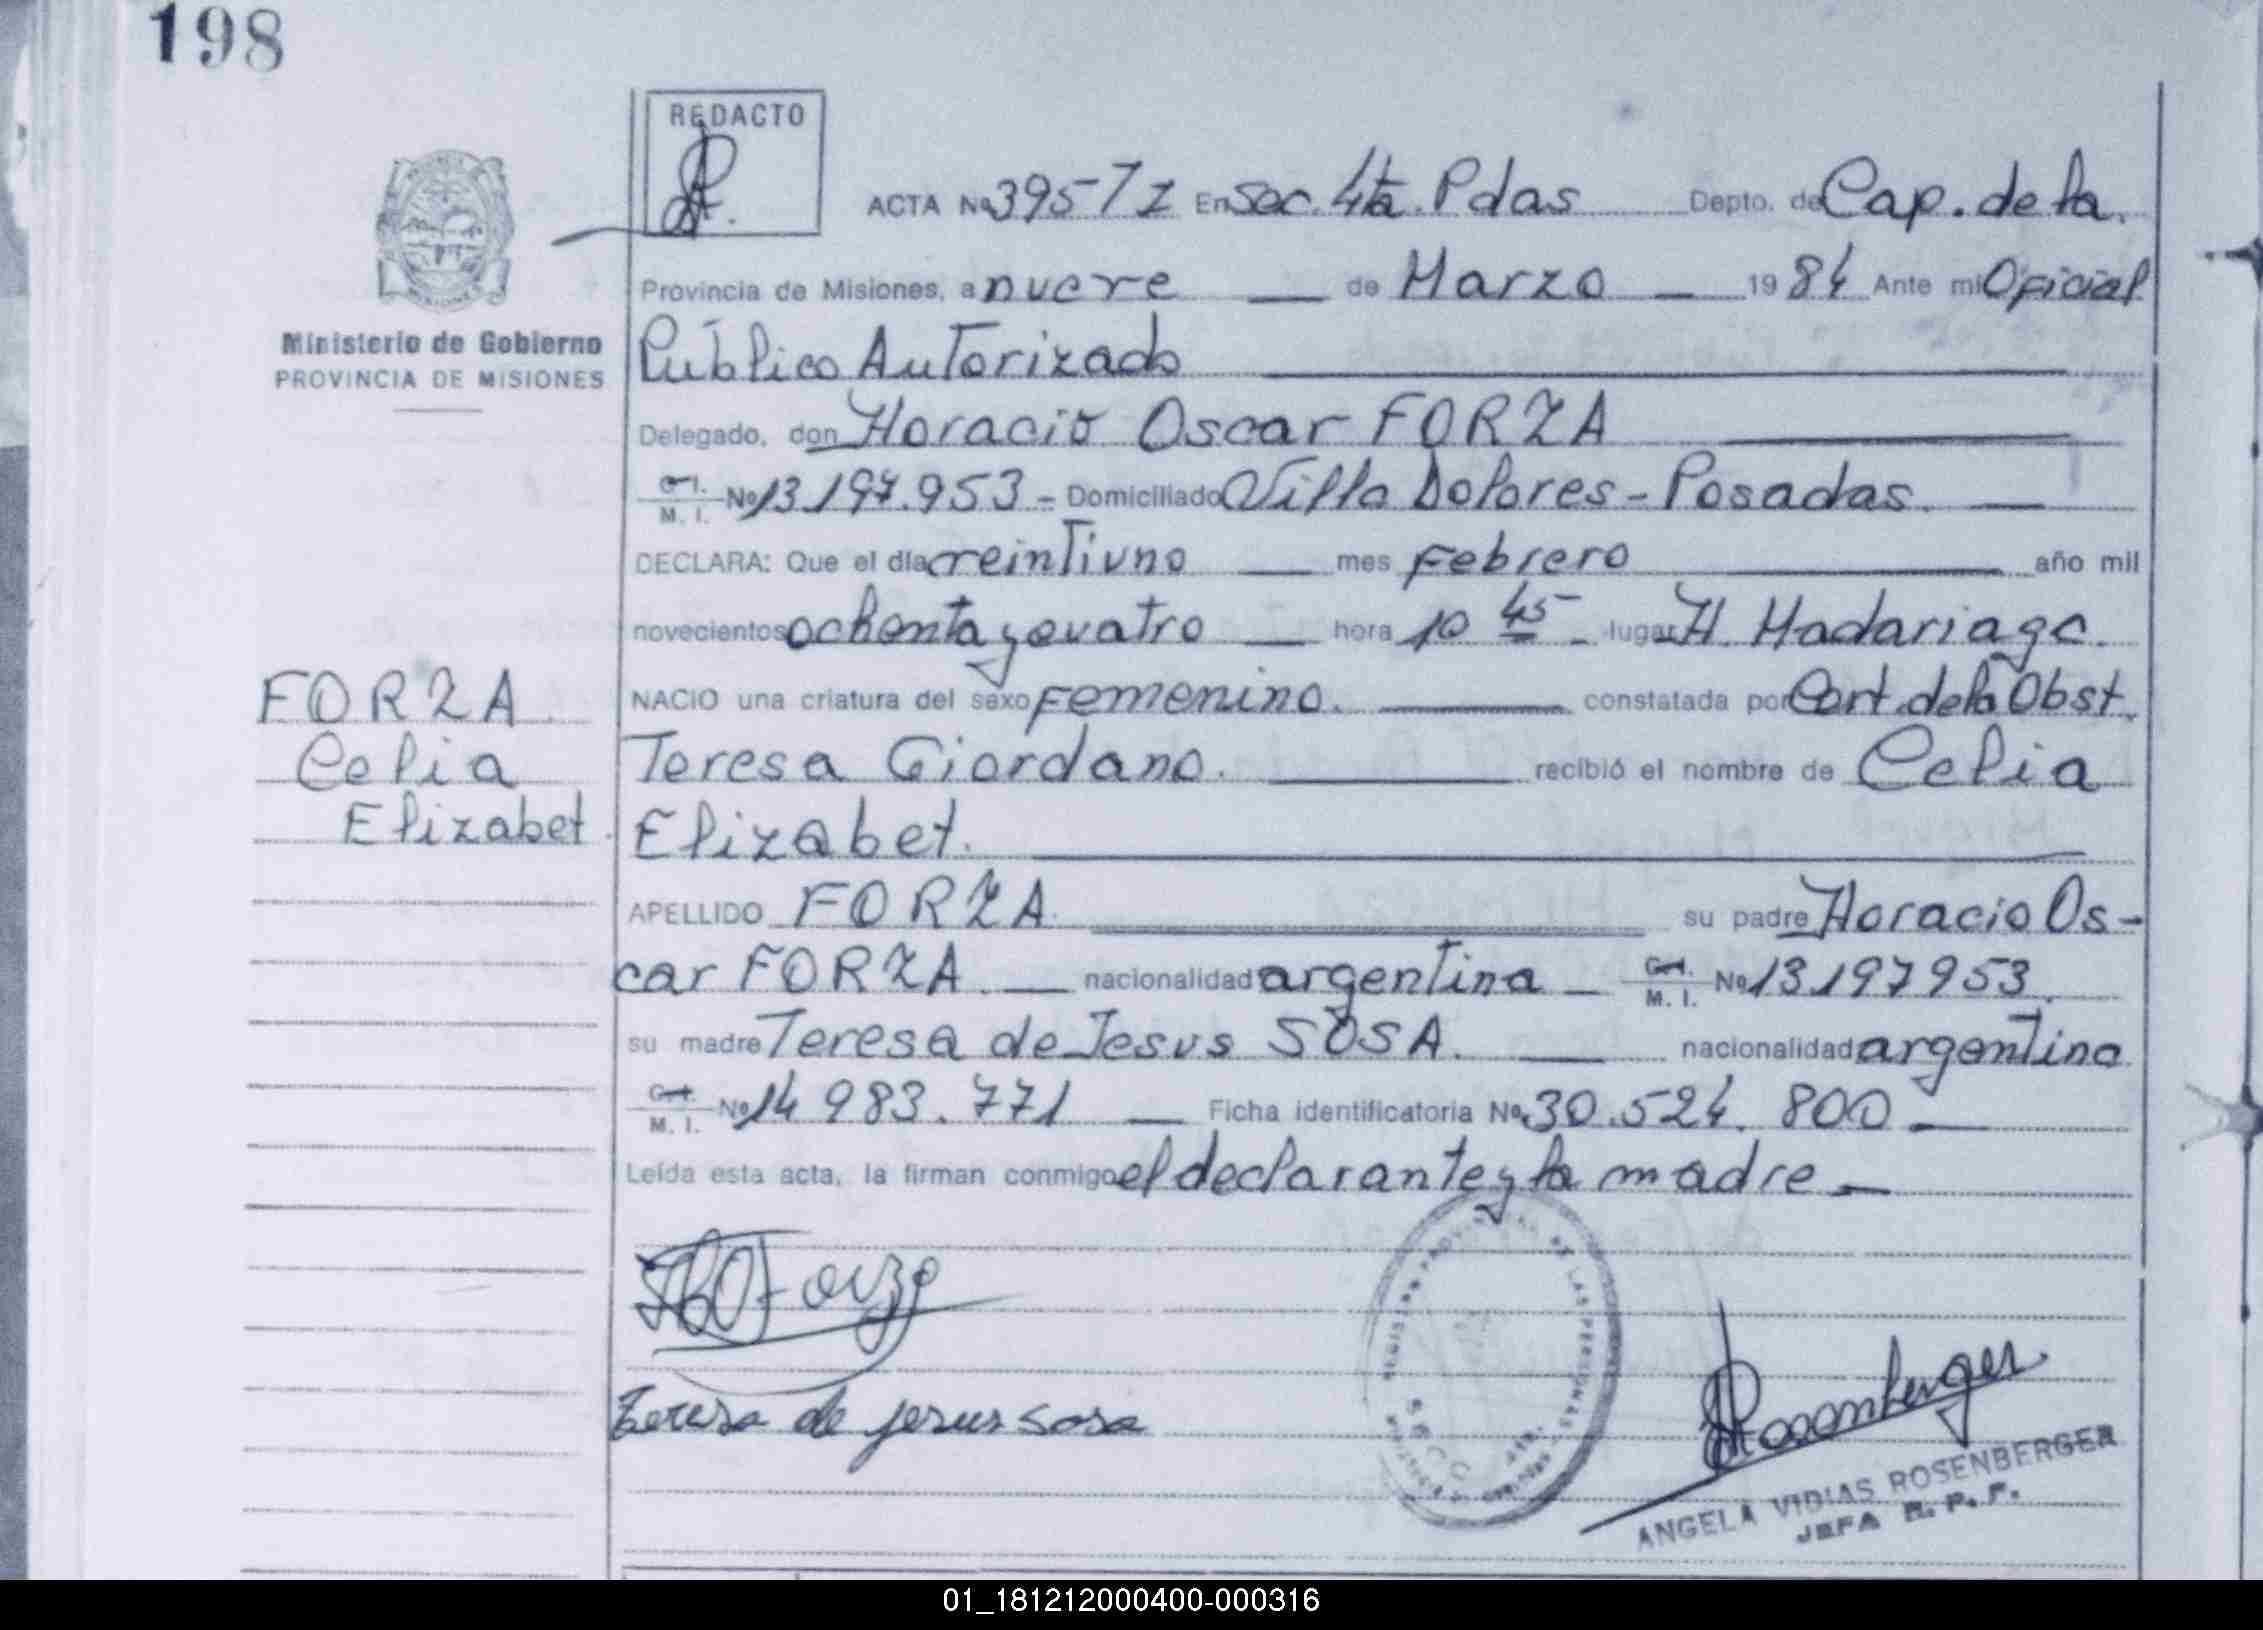 198
REDACTO
ACTA Nº 395 7 I En Sec. 4ta. Pdas Depto. de Cap. de la
Provincia de Misiones, a nueve de Marzo 1984 Ante mi Oficial
Público Autorizado
Ministerio de Gobierno
PROVINCIA DE MISIONES
Delegado, don Horacio Oscar FORZA
C. I. M. I. Nº 13.197.953 - Domiciliado Villa Dolores - Posadas.
DECLARA: Que el día veintiuno mes Febrero año mil
novecientos ochenta y cuatro hora 10 45 - lugar H. Madariaga.
NACIO una criatura del sexo Femenino. constatada por Cert. de la Obst.
Teresa Giordano. recibió el nombre de Celia
Elizabet.
FORZA
Celia
Elizabet.
APELLIDO FORZA su padre Horacio Os-
car FORZA. nacionalidad argentina C. I. M. I. Nº 13197953.
su madre Teresa de Jesus SOSA. nacionalidad argentina
C. I. M. I. Nº 14 983.771 Ficha identificatoria Nº 30.524.800
Leída esta acta, la firman conmigo el declarante y la madre
HOForza
Teresa de jesus sosa
REGISTRO PROVINCIAL DE LAS PERSONAS
Rosenberger
ANGELA VIDIAS ROSENBERGER
JEFA R. P. P.
01_181212000400-000316